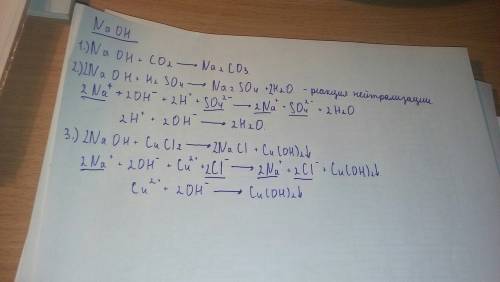 NaOH
1.) NaOH + CO₂ → Na₂CO₃
2) 2NaOH + H₂SO₄ → Na₂SO₄ + 2H₂O - реакция нейтрализации
2Na⁺ + 2OH⁻ + 2H⁺ + SO₄²⁻ → 2Na⁺ + SO₄²⁻ + 2H₂O
2H⁺ + 2OH⁻ → 2H₂O
3.) 2NaOH + CuCl₂ → 2NaCl + Cu(OH)₂↓
2Na⁺ + 2OH⁻ + Cu²⁺ + 2Cl⁻ → 2Na⁺ + 2Cl⁻ + Cu(OH)₂↓
Cu²⁺ + 2OH⁻ → Cu(OH)₂↓